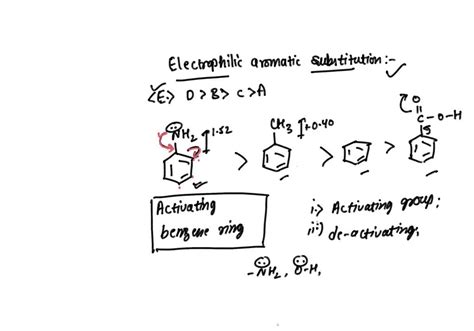 Electrophilic aromatic substitution:-
<E:> D > B > C > A
NH2 1.52 > CH3 +0.40 > > O C-O-H
S
Activating
benzene ring
i:> Activating group;
ii:) de-activating,
-NH2, O-H,